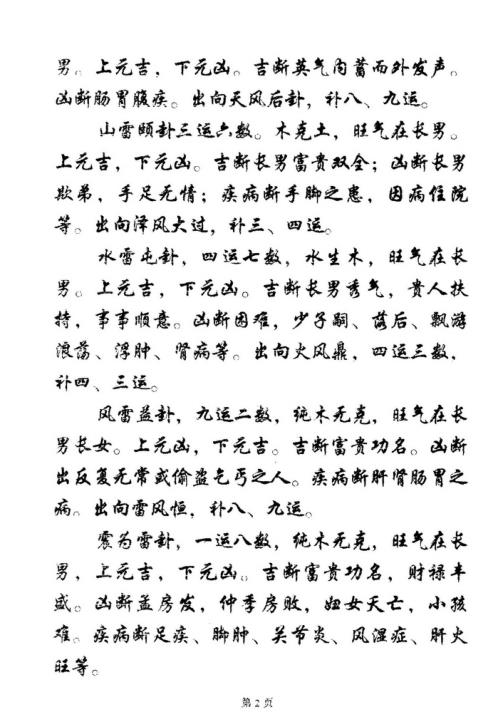 男。上元吉，下元凶。吉断英气内蓄而外发声。
凶断肠胃腹疾。出向天风后卦，补八、九运。
山雷颐卦三运六数。木克土，旺气在长男。
上元吉，下元凶。吉断长男富贵双全；凶断长男
欺弟，手足无情；疾病断手脚之患，因病住院
等。出向泽风大过，补三、四运。
水雷屯卦，四运七数，水生木，旺气在长
男。上元吉，下元凶。吉断长男秀气，贵人扶
持，事事顺意。凶断困难，少子嗣、落后、飘游
浪荡、浮肿、肾病等。出向火风鼎，四运三数，
补四、三运。
风雷益卦，九运二数，纯木无克，旺气在长
男长女。上元凶，下元吉。吉断富贵功名。凶断
出反复无常或偷盗乞丐之人。疾病断肝肾肠胃之
病。出向雷风恒，补八、九运。
震为雷卦，一运八数，纯木无克，旺气在长
男，上元吉，下元凶。吉断富贵功名，财禄丰
盛。凶断孟房发，仲季房败，妇女夭亡，小孩
难。疾病断足疾、脚肿、关节炎、风湿症、肝火
旺等。
第 2 页